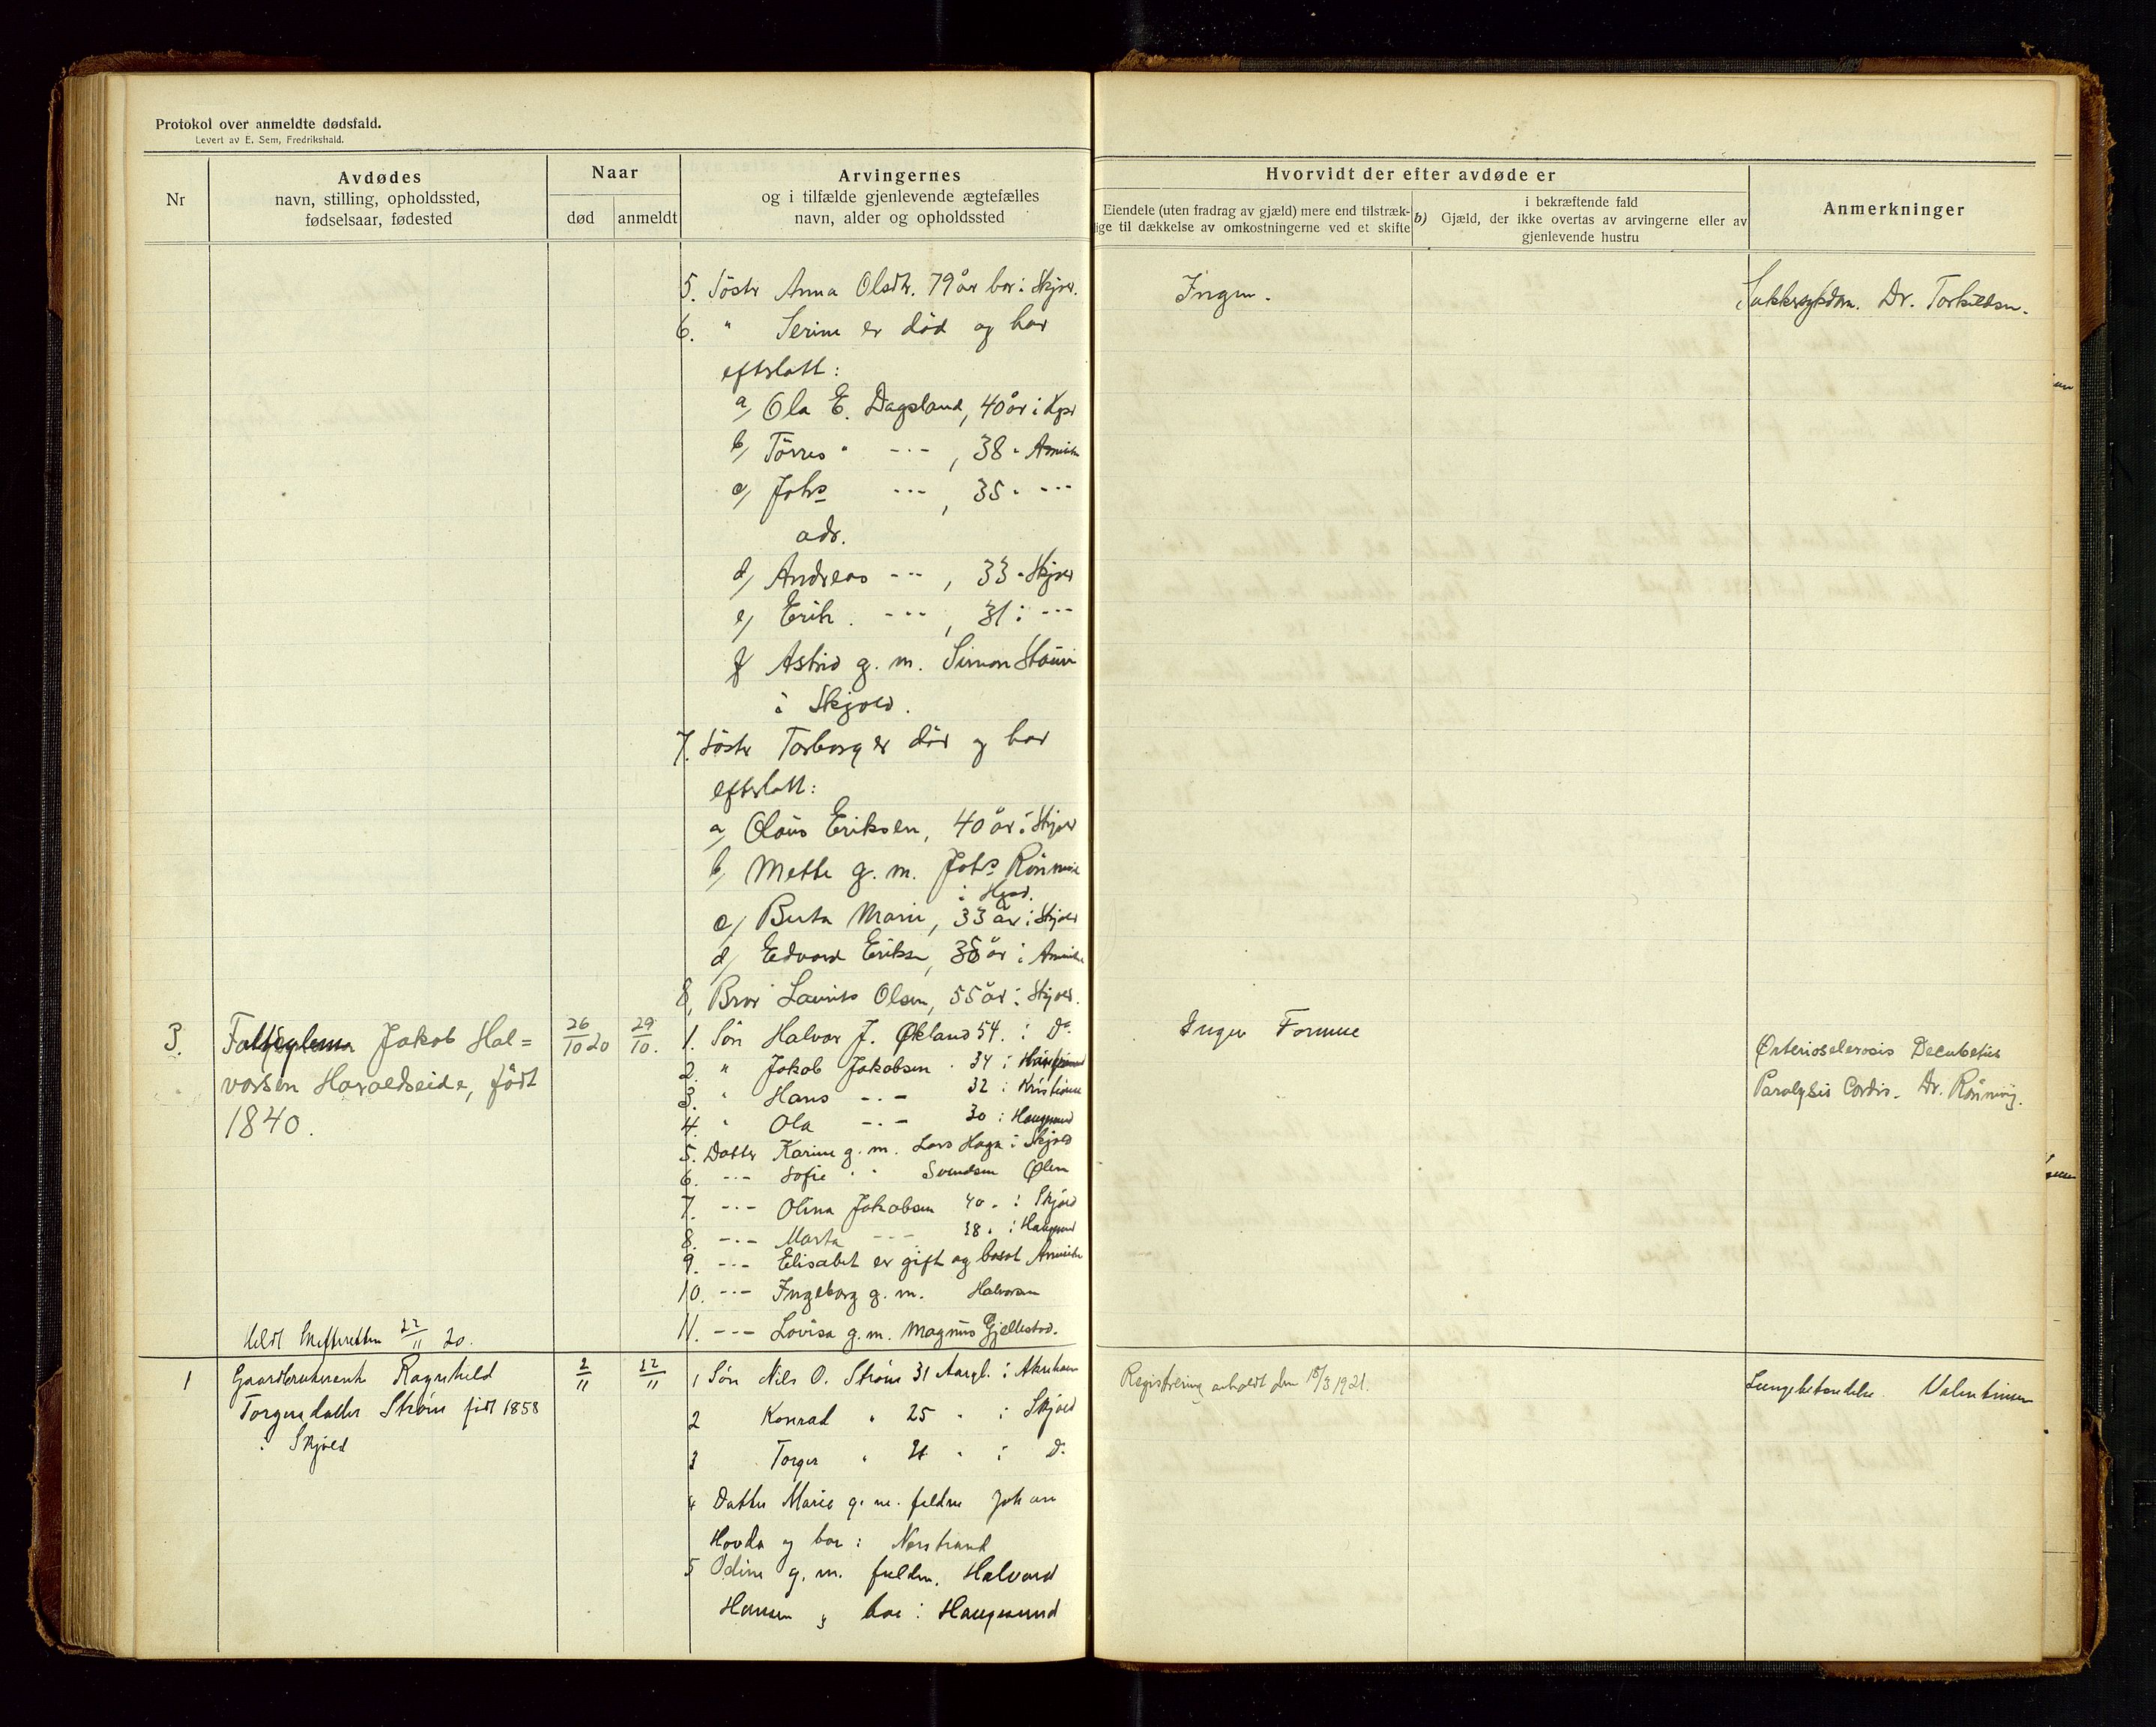 Protokol over anmeldte dødsfald.
Levert av E. Sem, Fredrikshald.
Nr
Avdødes
navn, stilling, opholdssted,
fødselsaar, fødested
Naar
død
anmeldt
Arvingernes
og i tilfælde gjenlevende ægtefælles
navn, alder og opholdssted
Hvorvidt der efter avdøde er
Eiendele (uten fradrag av gjæld) mere end tilstræk-
lige til dækkelse av omkostningerne ved et skifte
i bekræftende fald
b) Gjæld, der ikke overtas av arvingerne eller av
gjenlevende hustru
Anmerkninger
5. Söster Anna Olsdtr. 79 år bor i Skjold.
Ingen.
Sukkersykdom. Dr. Torkildsen.
6. " Serine er död og har
efterlatt:
a, Ola E. Dagsland, 40 år i
b, Törres " -·- , 38 " Amerika
c, Johs -·- , 35 " -·-
adr.
d, Andreas -·- , 33 " Skjold
e, Erik -·- , 31 i -·-
f Astrid g. m. Simon
i Skjold.
7. Söster Torborg er död og har
efterlatt:
a, Olaus Eriksen, 40 år i Skjold
b, Mette g. m. Johs
i
c, Berta Marie, 33 år i Skjold
d, Edvard Eriksen, år i Amerika
8, Bror Laurits Olsen, 55 år i Skjold.
3.
Jakob Hal=
vorsen Haraldseide, födt
1840.
26/10 20
29/10.
1. Sön Halvor J. Økland 54. i Do
2. " Jakob Jakobsen " 34 i Haugesund
3. " Hans -·- 32 i Kristiania
4. " Ola -·- 30 i Haugesund
5. Datter Karine g. m. Lars Haga i Skjold
6. -·- Sofie " " Svendsen Ølen
7. -·- Olina Jakobsen 40 " i Skjold
8. -·- Marta -·- 38 " i Haugesund
9. -·- Elisabet er gift og bosat Amerika
10. -·- Ingeborg g. m. Halvorsen
11. -·- Lovisa g. m. Magnus Gjellestad.
Ingen Formue
Arterioselerosis Decubetus
Paralysis Cordis. Dr. Rönning.
Meldt Skifteretten 22/11 20.
1
Gaardbrukerenke Ragnhild
Torgersdatter Strøm født 1858
i Skjold
2/11
22/11
1 Søn Nils O. Strøm 31 Aargl. i Akrehavn
2 Konrad " 25 " i Skjold
3 Torger " 21 " i Do
4 Datter Marie g. m. fuldm. Johan
Hovda og bor i Nerstrand
5 Odine g. m. fuldm. Halvard
Hansen og bor i Haugesund
Registrering avholdt den 18/3 1921.
Lungebetændelse. Valentinsen